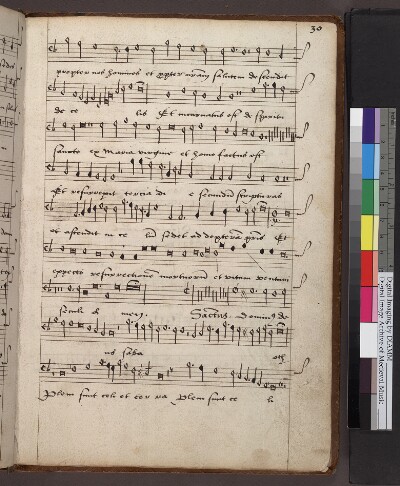 30
propter nos homines et ppter nram salutem descendit
de ce lis Et incarnatus est de spiritu
sancto ex maria virgine et homo factus est
Et resurrexit tercia di e secundum scripturas
et ascendit in ce lu sedet ad dexteram pris Et
expecto resurrectione mortuoru et vitam venturi
seculi a men. Sanctus Dominus de
us saba oth
Pleni sunt celi et ter ra Pleni sunt ce li
Digital Imaging by DIAMM
Digital Image Archive of Medieval Music